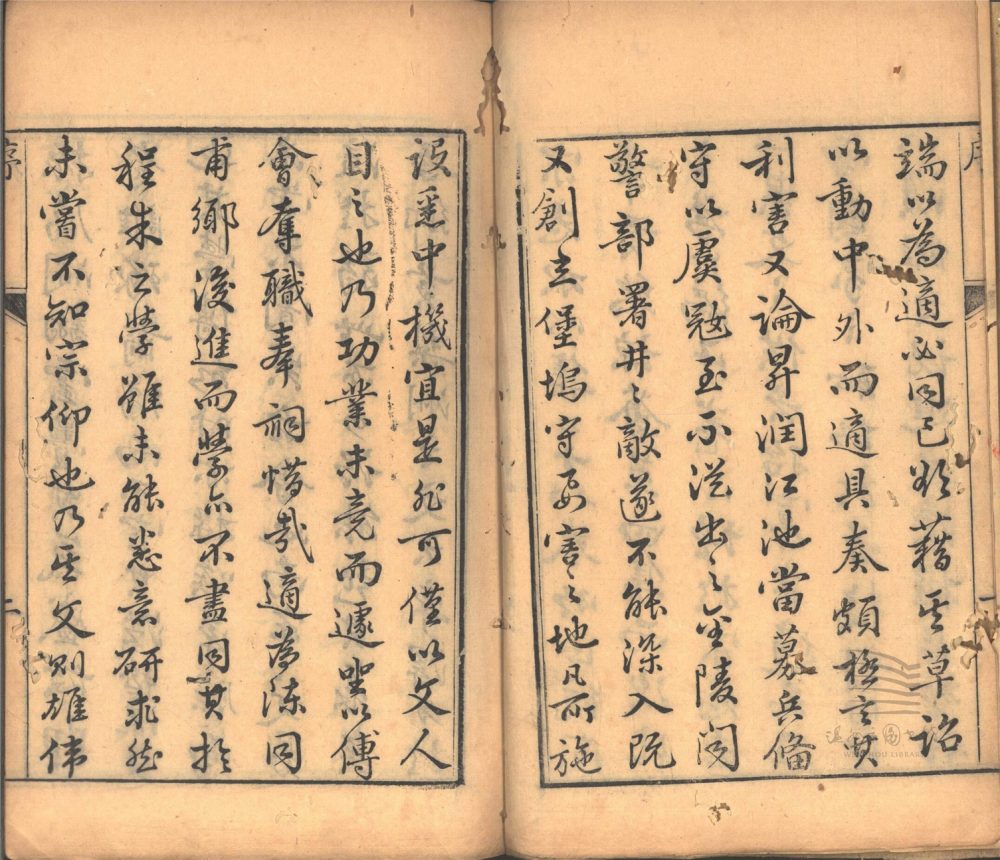 端以為適必同己欲藉其草詔
以動中外而適具奏頗極言其
利害又論昇潤江池當募兵備
守以虞寇至而不從出之金陵閱
警部署井々敵遂不能深入既
又創立堡塢守要害之地凡所施
設悉中機宜是非可僅以文人
目之也乃功業未竟而遽坐以傅
會奪職奉祠惜哉適為陳同
甫鄉後進而學亦不盡同其於
程朱之學雖未能悉意研求然
未嘗不知宗仰也乃其文則雄偉
序
二